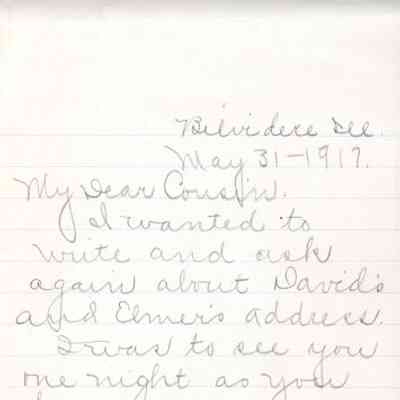 Belvidere Ill.
May 31-1917.
My Dear Cousin.
I wanted to
write and ask
again about David's
and Elmer's address.
I was to see you
one night as you